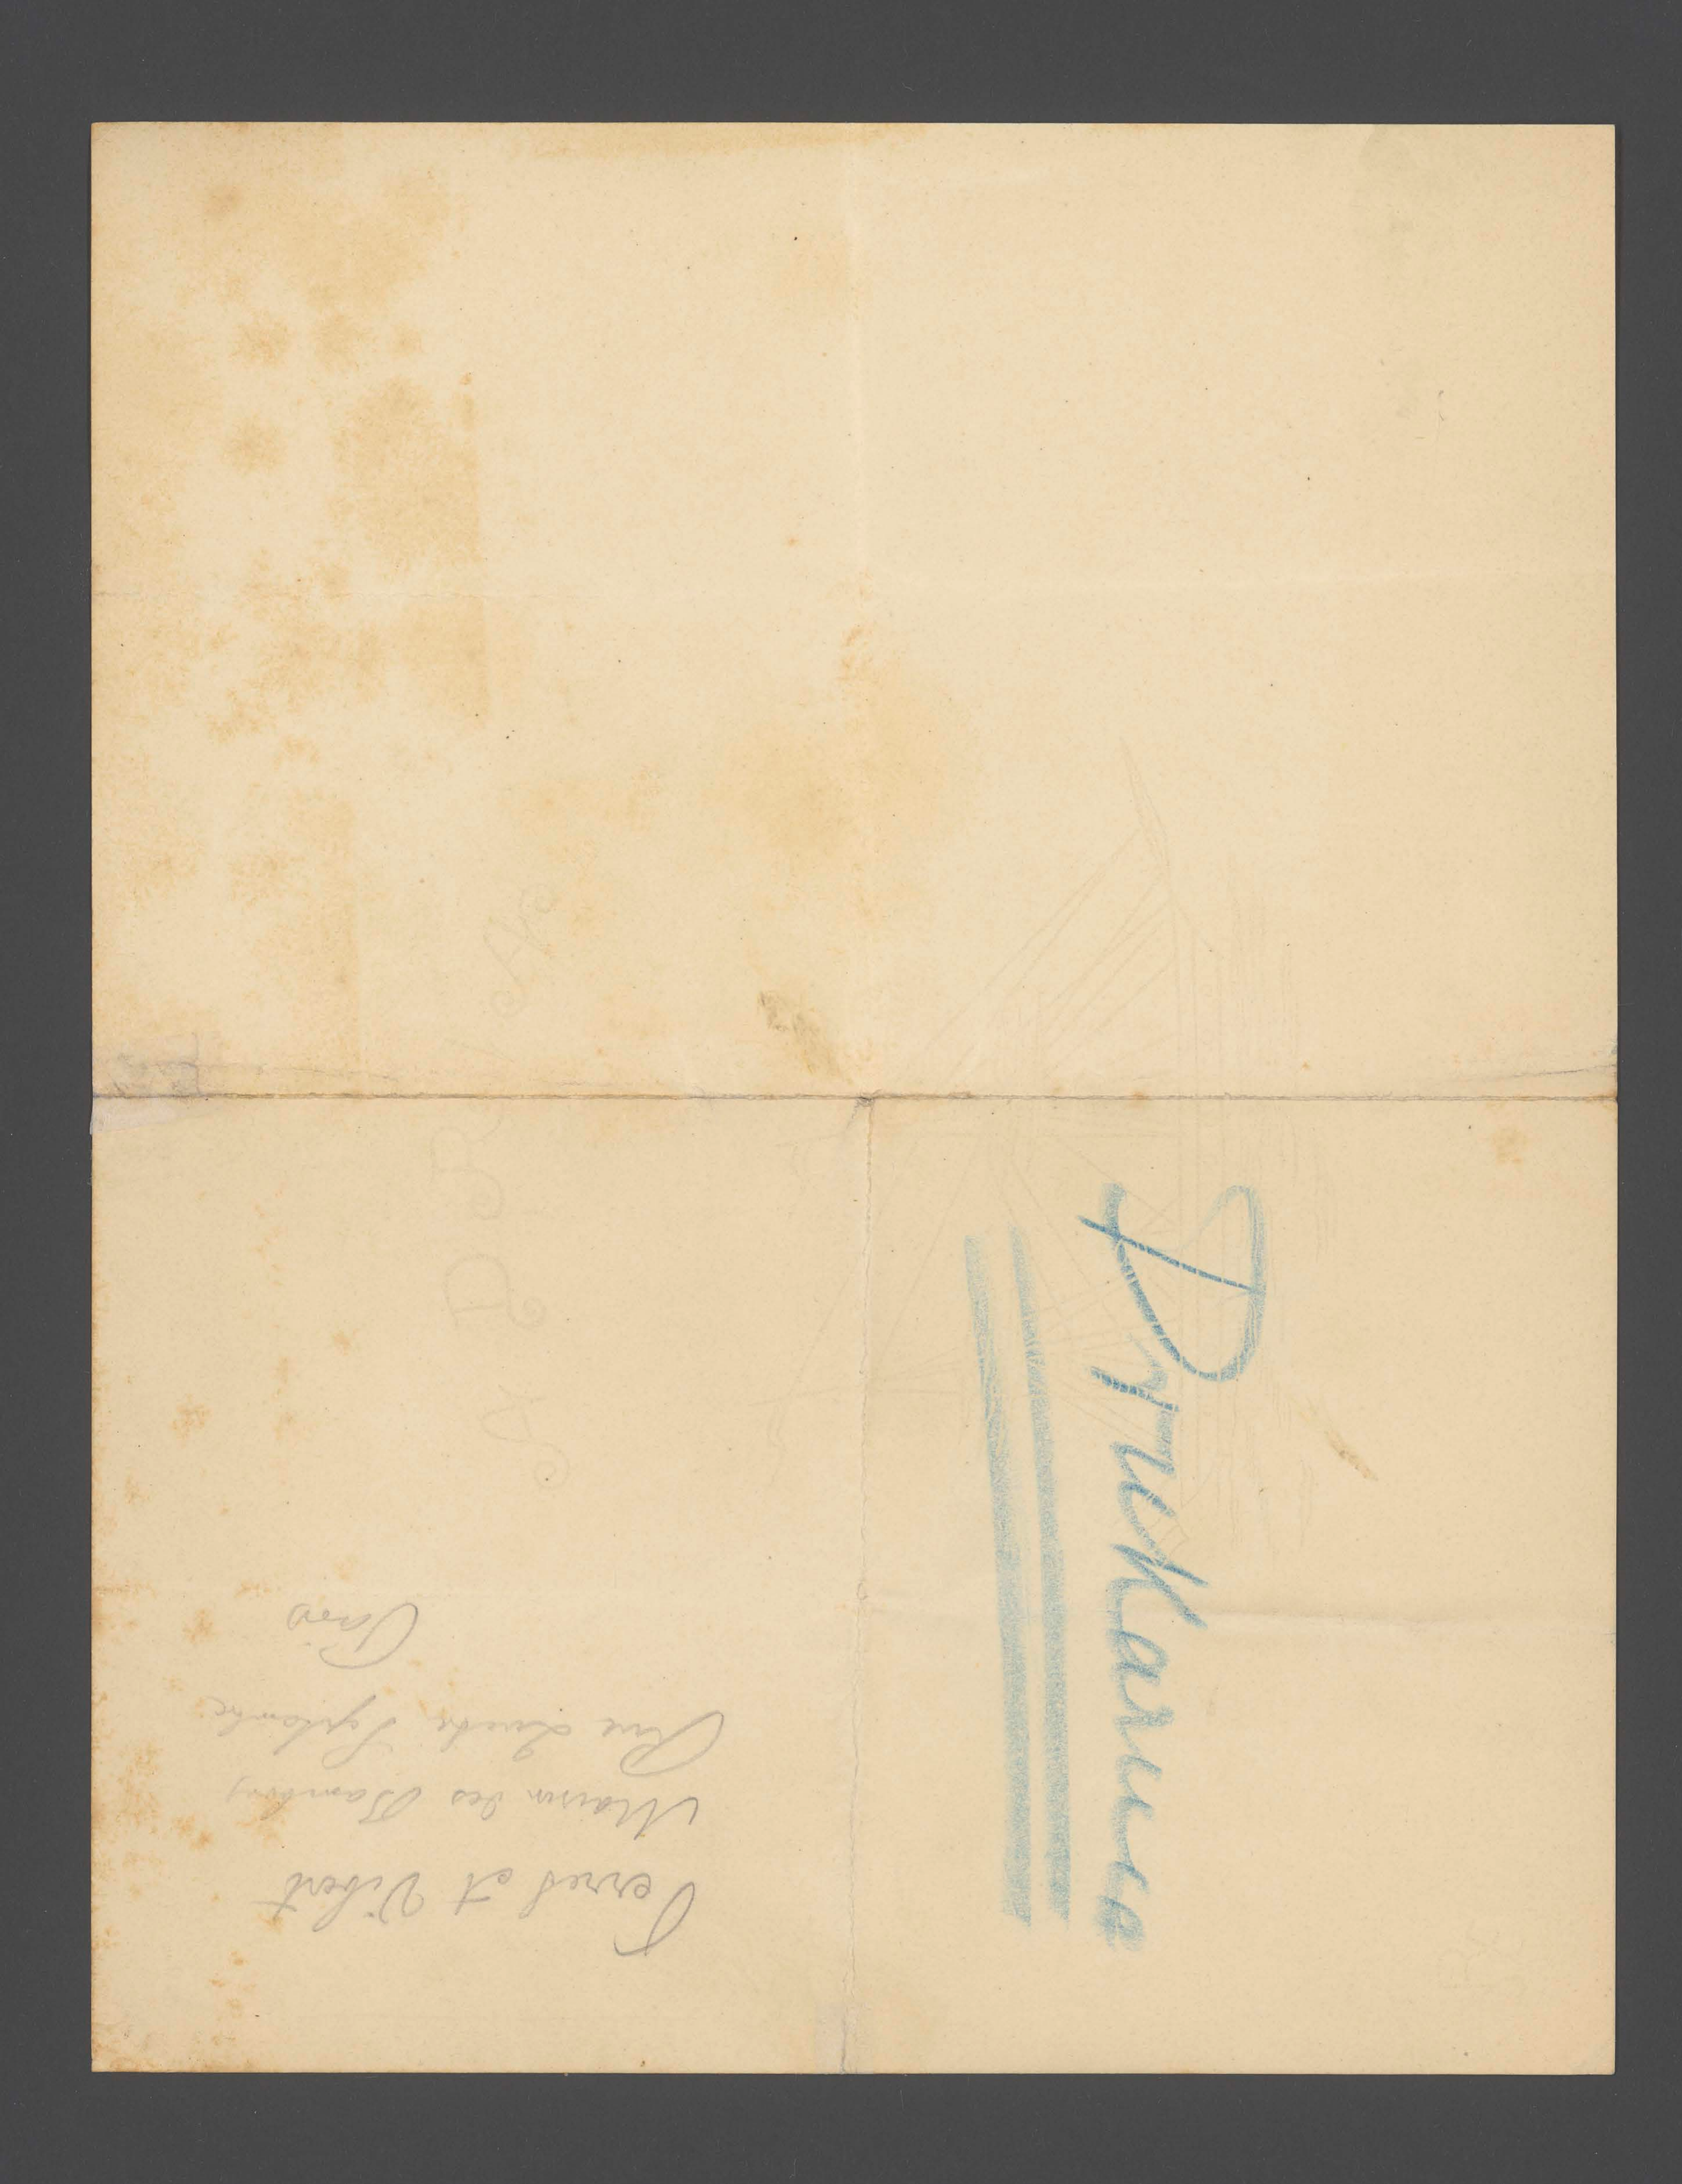 Drukarnia
Perret et Vibert
Maison des Bambous
Rue Quatre Septembre
Paris